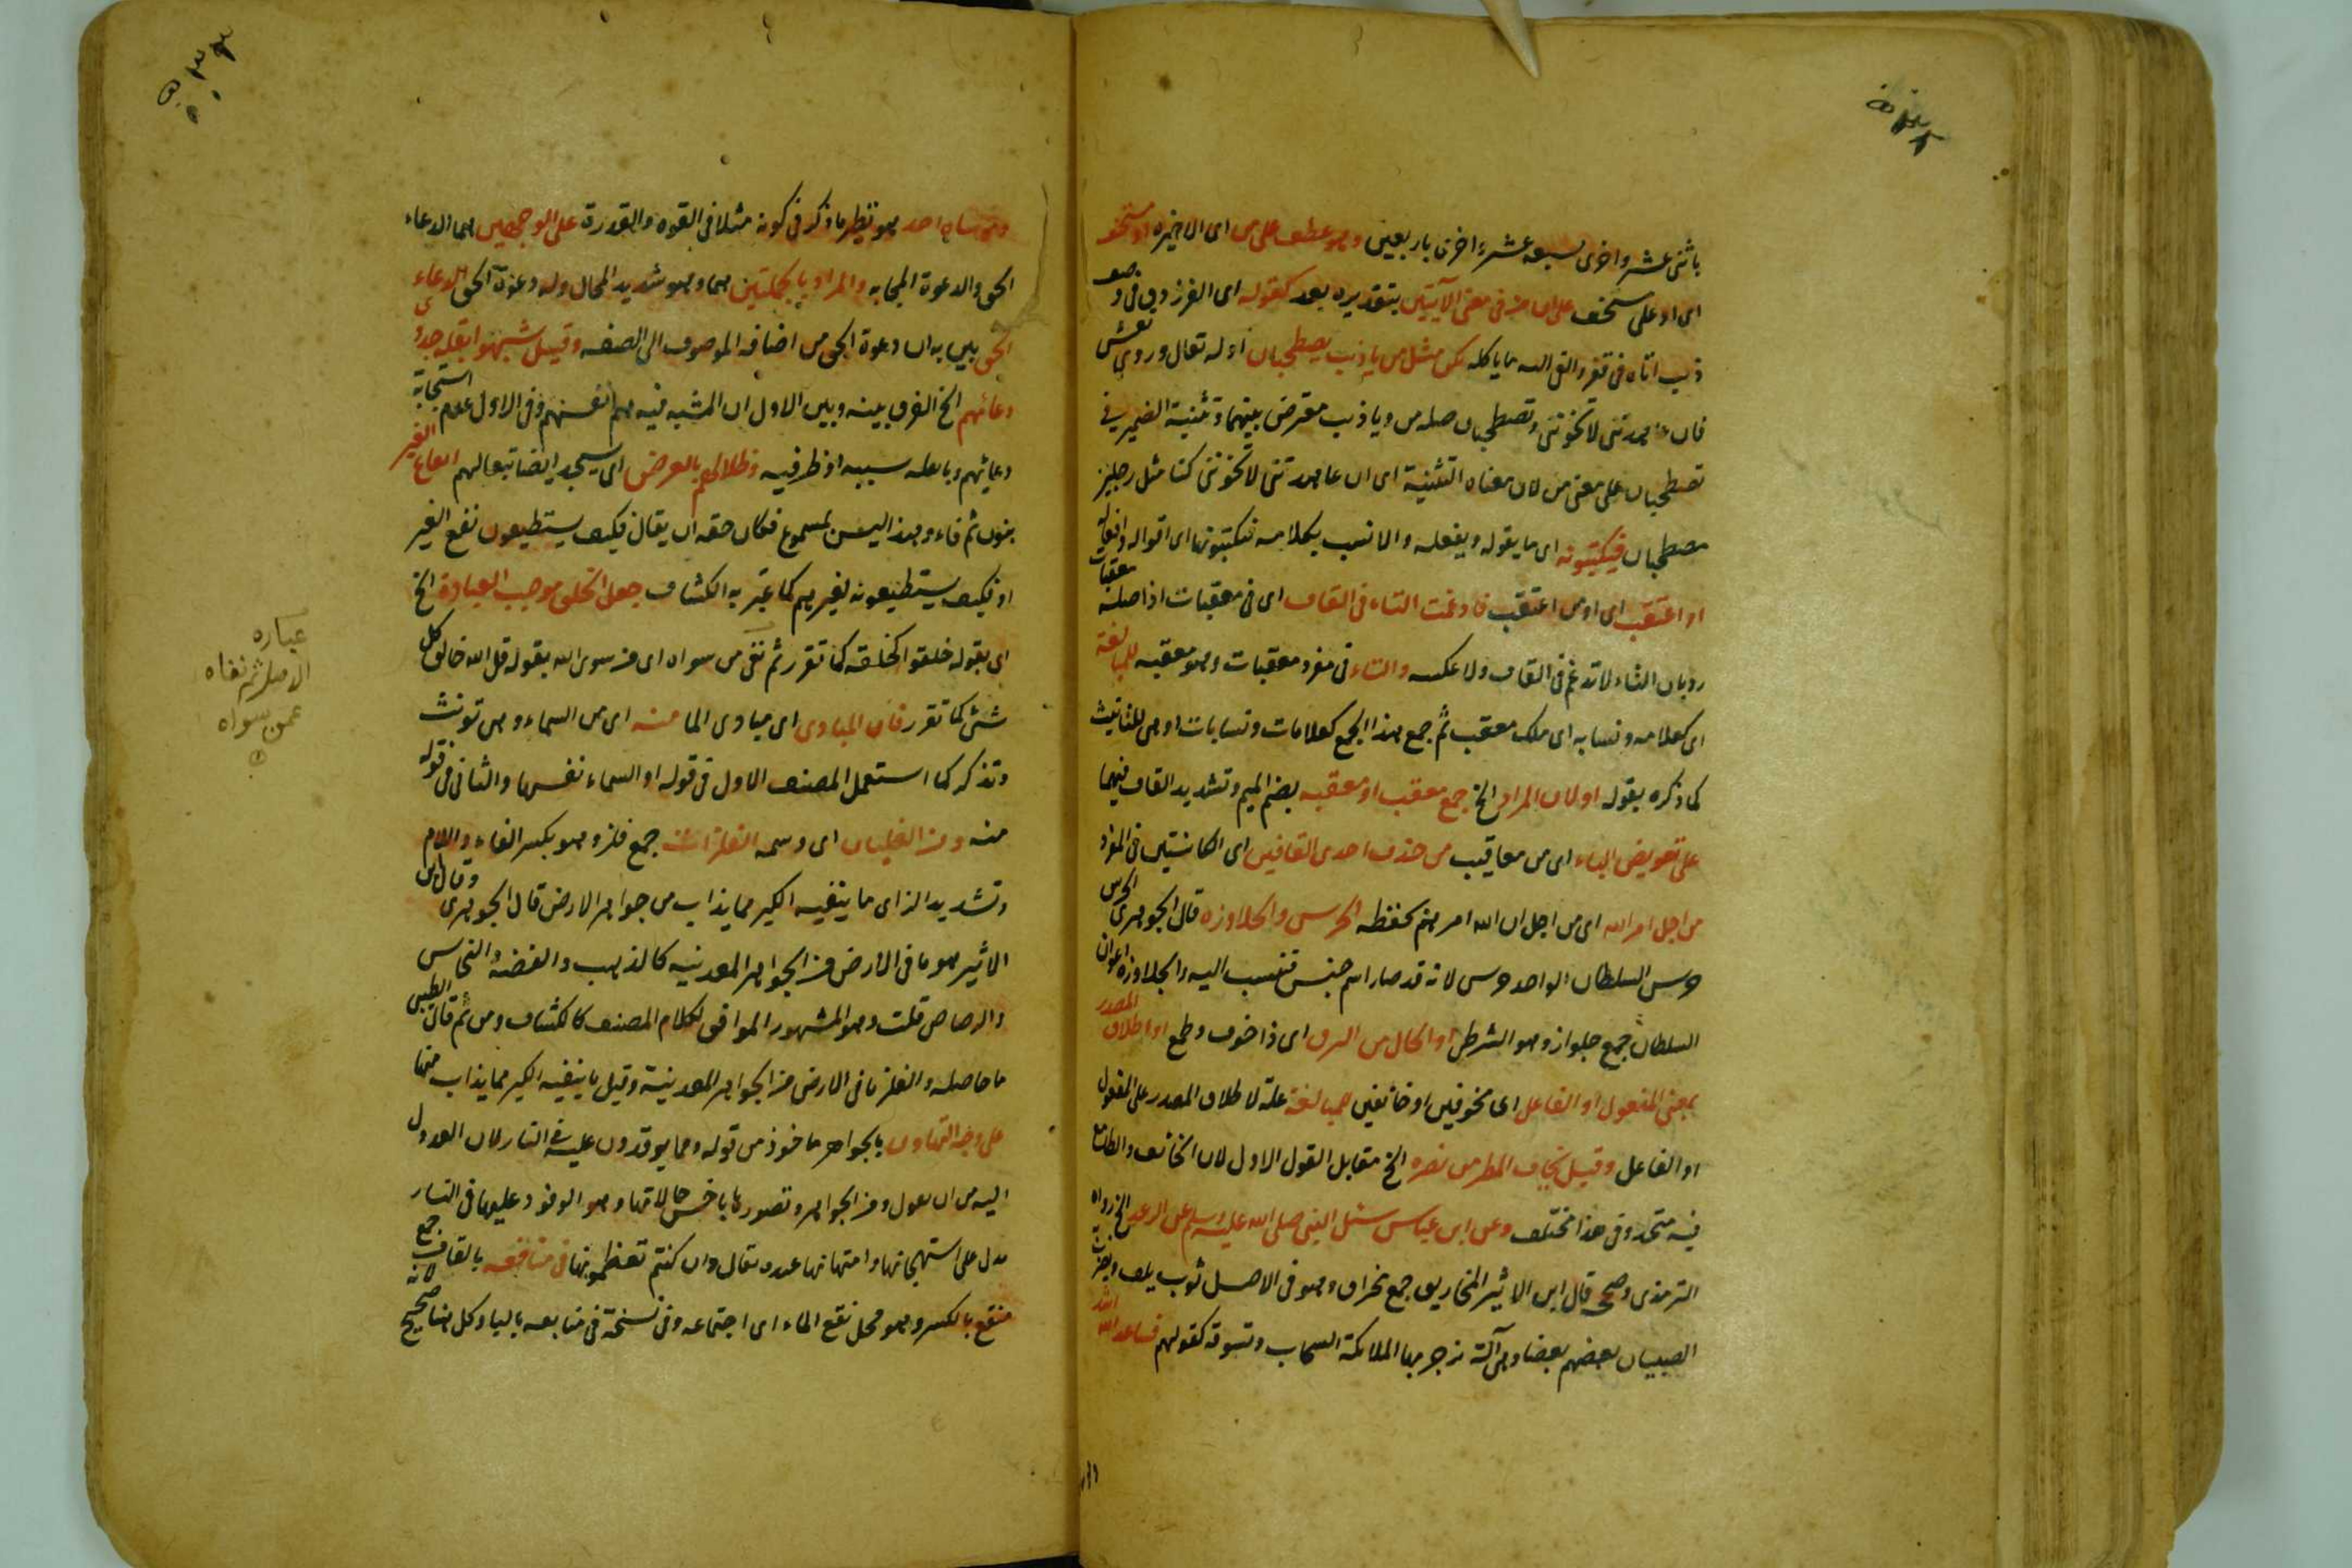 باثنى عشر واخرى بسبعه عشر واخرى باربعين وهو عطف على من اى الاخيره او مستخف
اى او على مستخف على ان من فى معنى الآيتين بتقديره بعد كقوله اى الفرزدق فى وصف
ذيب اتاه فى قفر والقى اليه ما ياكله نكن مثل من يا ذيب يصطحبان اوله تعال وروى تعش
فان عاهدتنى لا تخوننى وتصطحبان صله من ويا ذيب معترض بينهما وتثنية الضمير فى
تصطحبان على معنى من لان معناه التثنية اى ان عاهدتنى لا تخوننى كنا مثل رجلين
مصطحبان فيكتبونه اى ما يقوله ويفعله والانسب بكلامه فيكتبونها اى اقواله وافعاله
او اعتقب اى او من اعتقب فادغمت التاء فى القاف اى فى معقبات اذ اصله معتقبات
رد بان التاء لا تدغم فى القاف ولا عكسه والتاء فى مفرد معقبات وهو معقبه للمبالغة
اى كعلامه ونسابه اى ملك معقب ثم جمع هذا الجمع كعلامات ونسابات او هى للتانيث
كما ذكره بقوله او لان المراد الخ جمع معقب او معقبه بضم الميم وتشديد القاف فيهما
على تعويض الياء اى من معاقيب من حذف احدى القافين اى الكائنتين فى المفرد
من اجل امر الله اى من اجل ان الله امرهم بحفظه الحرس والجلاوزه قال الجوهرى الحرس
حرس السلطان الواحد حرسى لانه قد صار اسم جنس فنسب اليه والجلاوزه اعوان
السلطان جمع جلواز وهو الشرطى او الحال من البرق اى ذا خوف وطمع او اطلاق المصدر
بمعنى المفعول او الفاعل اى مخوفين او خائفين للمبالغة علة لاطلاق المصدر على المفعول
او الفاعل وقيل يخاف المطر من يضره الخ مقابل القول الاول لان الخائف والطامع
فيه متحد وفى هذا مختلف وعن ابن عباس سئل النبى صلى الله عليه وسلم عن الرعد الخ رواه
الترمذى وصححه قال ابن الاثير المخاريق جمع مخراق وهو فى الاصل ثوب يلف ويضرب به
الصبيان بعضهم بعضا وهى آلة تزجر بها الملائكة السحاب وتسوقه كقولهم فساعد الله اشد
وموساه احد هو نظير ما ذكر فى كونه مثلا فى القوه والقدرة على الوجهين هما الدعاء
الحق والدعوة المجابه والمراد بالجملتين هما وهو شديد المحال وله دعوة الحق الدعاء
الحق بين به ان دعوة الحق من اضافه الموصوف الى الصفه وقيل شبهوا بقلة جدوى
دعائهم الخ الفرق بينه وبين الاول ان المشبه فيه هم انفسهم وفى الاول عدم استجابة
دعائهم وبالعله سببه او ظرفيه وظلالهم بالعرض اى يسجد ايضا تبعا لهم
بنون ثم فاء وهذا ليس بمسموع فكان حقه ان يقال فكيف يستطيعون نفع الغير
او فكيف يستطيعونه لغيرهم كما عبر به الكشاف جعل الخلق موجب العباده الخ
اى بقوله خلقوا كخلقه كما تقرر ثم نفى من سواه اى من سوى الله بقوله قل الله خالق كل
شئ كما تقرر فان المبادى اى مبادى الما منه اى من السماء وهى تونث
وتذكر كما استعمل المصنف الاول فى قوله او السماء نفسها والثانى فى قوله
منه وبه الغليان اى وسمه الفلزات جمع فلز وهو بكسر الفاء واللام
وتشديد الزاى ما ينفيه الكير مما يذاب من جواهر الارض قال الجوهرى وقال ابن
الاثير هو ما فى الارض من الجواهر المعدنيه كالذهب والفضة والنحاس
والرصاص قلت وهو المشهور الموافق لكلام المصنف كالكشاف ومن ثم قال الطيبى
ما حاصله والفلز ما فى الارض من الجواهر المعدنية وقيل ما ينفيه الكير مما يذاب منها
على وجه التهاون بالجواهر ماخوذ من قوله ومما يوقدون عليه فى النار لان العدول
اليه من ان يقول ومن الجواهر وتصورها باخس حالاتها وهو الوقود عليها فى النار
يدل على استهجانها وامتهانها عنده يقال وان كنتم تعظمونها فى مناقعه بالقاف جمع
منقع بالكسر وهو محل نقع الماء اى اجتماعه وفى نسخة فى منابعه بالباء وكل هنا صحيح لانه
عباره
الاصل ثم نفاه
عمن سواه